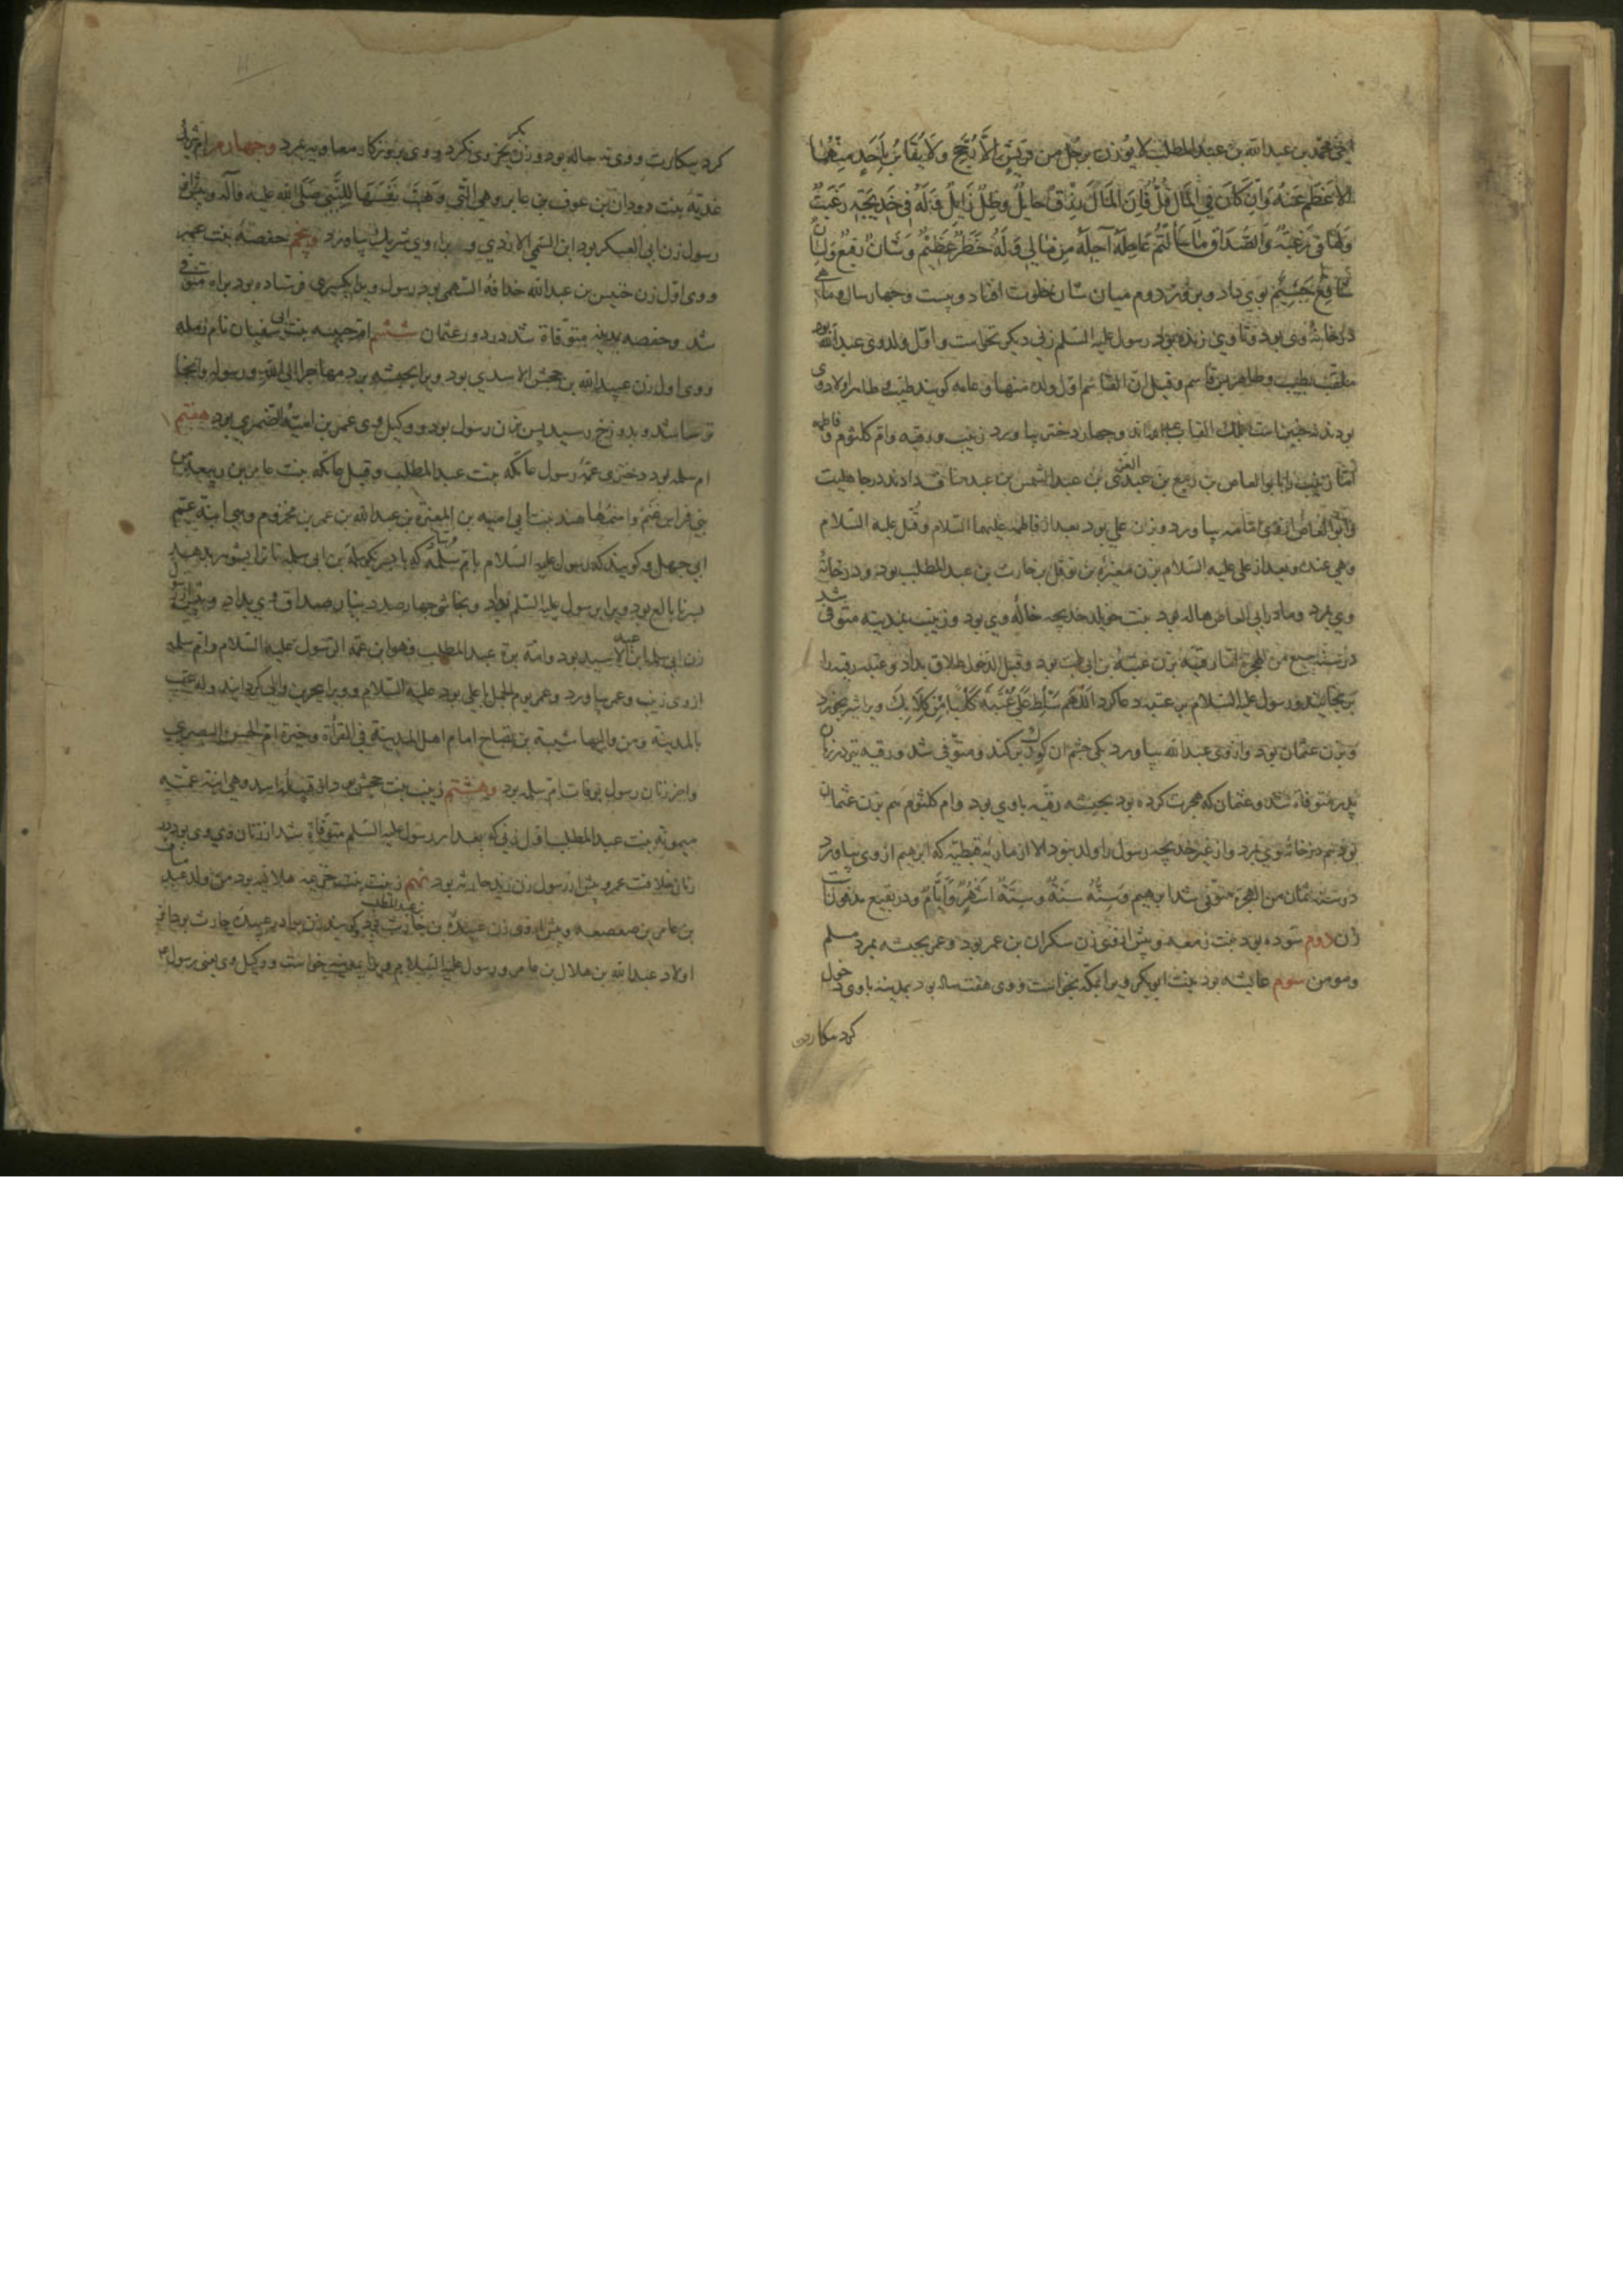 محمد بن عبد الله بن عبد المطلب لا یوزن برجل من قریش الا رجح ولا یقاس باحد منهما
الا عظم عنه وان کان فی المال قل فان المال رزق حایل وظل زایل وله فی خدیجة رغبة
ولها فی رغبة والصداق ما سألتم عاجله آجله من مالی وله خطر عظیم وشأن رفیع ولسان
شافع جسیم بوی داد و روز دوم میان شان خلوت افتاد و بیست و چهار سال و ماهی
در خانه وی بود و تا وی زنده بود رسول علیه السلم زنی دیکر نخواست و اول ولد وی عبد الله بود
ملقب بطیب و طاهر بن قاسم و قیل ان القاسم اول ولد منها و عامه کویند طیب و طاهر اولاد وی
بودند نه چنین است القاب و چهار دختر بیاورد زینب و رقیه و ام کلثوم و فاطمه
اما زینب را بابو العاص بن ربیع بن عبد العزی بن عبد الشمس بن عبد مناف دادند در جاهلیت
و ابو العاص از وی امامه بیاورد و زن علی بود بعد از فاطمه علیهما السلام و قتل علیه السلام
وهی عنده و بعد از علی علیه السلام بزن مغیرة بن نوفل بن حارث بن عبد المطلب بود و در خانه
وی بمرد و مادر ابی العاص هاله بود بنت خویلد خدیجه خاله وی بود و زینب بمدینه متوفی شد
در سنه سبع من الهجرة اما رقیه بزن عتبة بن ابی لهب بود و قبل الدخول طلاق بداد و عتبه رقیه را
برنجانید و رسول علیه السلام بر عتبه دعا کرد اللهم سلط علی عتبة کلبا من کلابک ویرا شیر بخورد
و بزن عثمان بود و از وی عبد الله بیاورد یکی چشم ان کودک بکند و متوفی شد و رقیه نیز در زمان
پدر متوفاة شد و عثمان که هجرت کرده بود بحبشه رقیه با وی بود و ام کلثوم هم بزن عثمان
بود هم در خانه وی بمرد و از غیر خدیجه رسول را ولد نبود الا از ماریه قبطیه که ابرهیم از وی بیاورد
در سنه ثمان من الهجرة متوفی شد ابرهیم وسنه سنة وستة اشهر وایام و در بقیع مدفونست
زن دوم سوده بود بنت زمعه و پیش از وی زن سکران بن عمر بود و عمر بحبشه بمرد مسلم
و مومن سوم عایشه بود بنت ابو بکر ویرا بمکه بخواست و وی هفت ساله بود بمدینه با وی دخول
کرد بکارت
کرد بکارت و وی نه ساله بود و زن بکر بجز وی نکرد و وی بروزکار معاویه بمرد و چهارم ام شریک
غدیه بنت دودان بن عوف بن عامر وهی التی وهبت نفسها للنبی صلی الله علیه وآله و پیش از
رسول زن ابی العسکر بود ابن السمی الازدی و برا وی شریک بیاورد و پنجم حفصه بنت عمر
و وی اول زن خنیس بن عبد الله خذافة السهمی بود رسول ویرا بکسری فرستاده بود براه متوفی
شد و حفصه بمدینه متوفاة شد در دور عثمان ششم ام حبیبه بنت ابی سفیان نام رمله
و وی اول زن عبید الله بن جحش الاسدی بود ویرا بحبشه برد مهاجرا الی الله و رسوله وانجا
ترسا شد و بدوزخ رسید پس بزن رسول بود و وکیل وی عمر بن امیة الضمری بود هفتم
ام سلمه بود دختری عمه رسول عاتکه بنت عبد المطلب و قیل عاتکه بنت عامر بن ربیعة من
بنی فراس بن غنم واسمها هند بنت ابی امیه بن المغیرة بن عبد الله بن عمر بن مخزوم وهی ابنة عم
ابی جهل و کویند که رسول علیه السلام بام سلمه که سلمة بن ابی سلمه بدهد
نابالغ بود ویرا بر رسول علیه السلم بداد و نجاشی چهار صد دینار صداق وی بداد و پیش از
زن ابی سلمه ابن عبد الاسد بود و امه برة عبد المطلب فهو ابن عمة الرسول علیه السلام و ام سلمه
از وی زینب و عمر بیاورد و عمر یوم الجمل با علی بود علیه السلام و ویرا ببحرین والی کردانید وله عقب
بالمدینة ومن والیها شیبة بن نصاح امام اهل المدینة فی القرأة وخیرة ام الحسن البصری
واخر زنان رسول بوفات ام سلمه بود و هشتم زینب بنت جحش بود از قبیله اسد وهی ابنة عمته
میمونة بنت عبد المطلب اول زنی که بعد از رسول علیه السلم متوفاة شد از زنان وی وی بود در
زمان خلافت عمر و پیش از رسول زن زید حارثه بود نهم زینب بنت خزیمه هلالیه بود من ولد عبد
بن عامر بن صعصعه و پیش از وی زن عبیدة بن حارث بن عبد المطلب کویند زن برادر عبیده حارث بود از
اولاد عبد الله بن هلال بن عامر و رسول علیه السلام بمدینه خواست و وکیل وی یعنی رسول